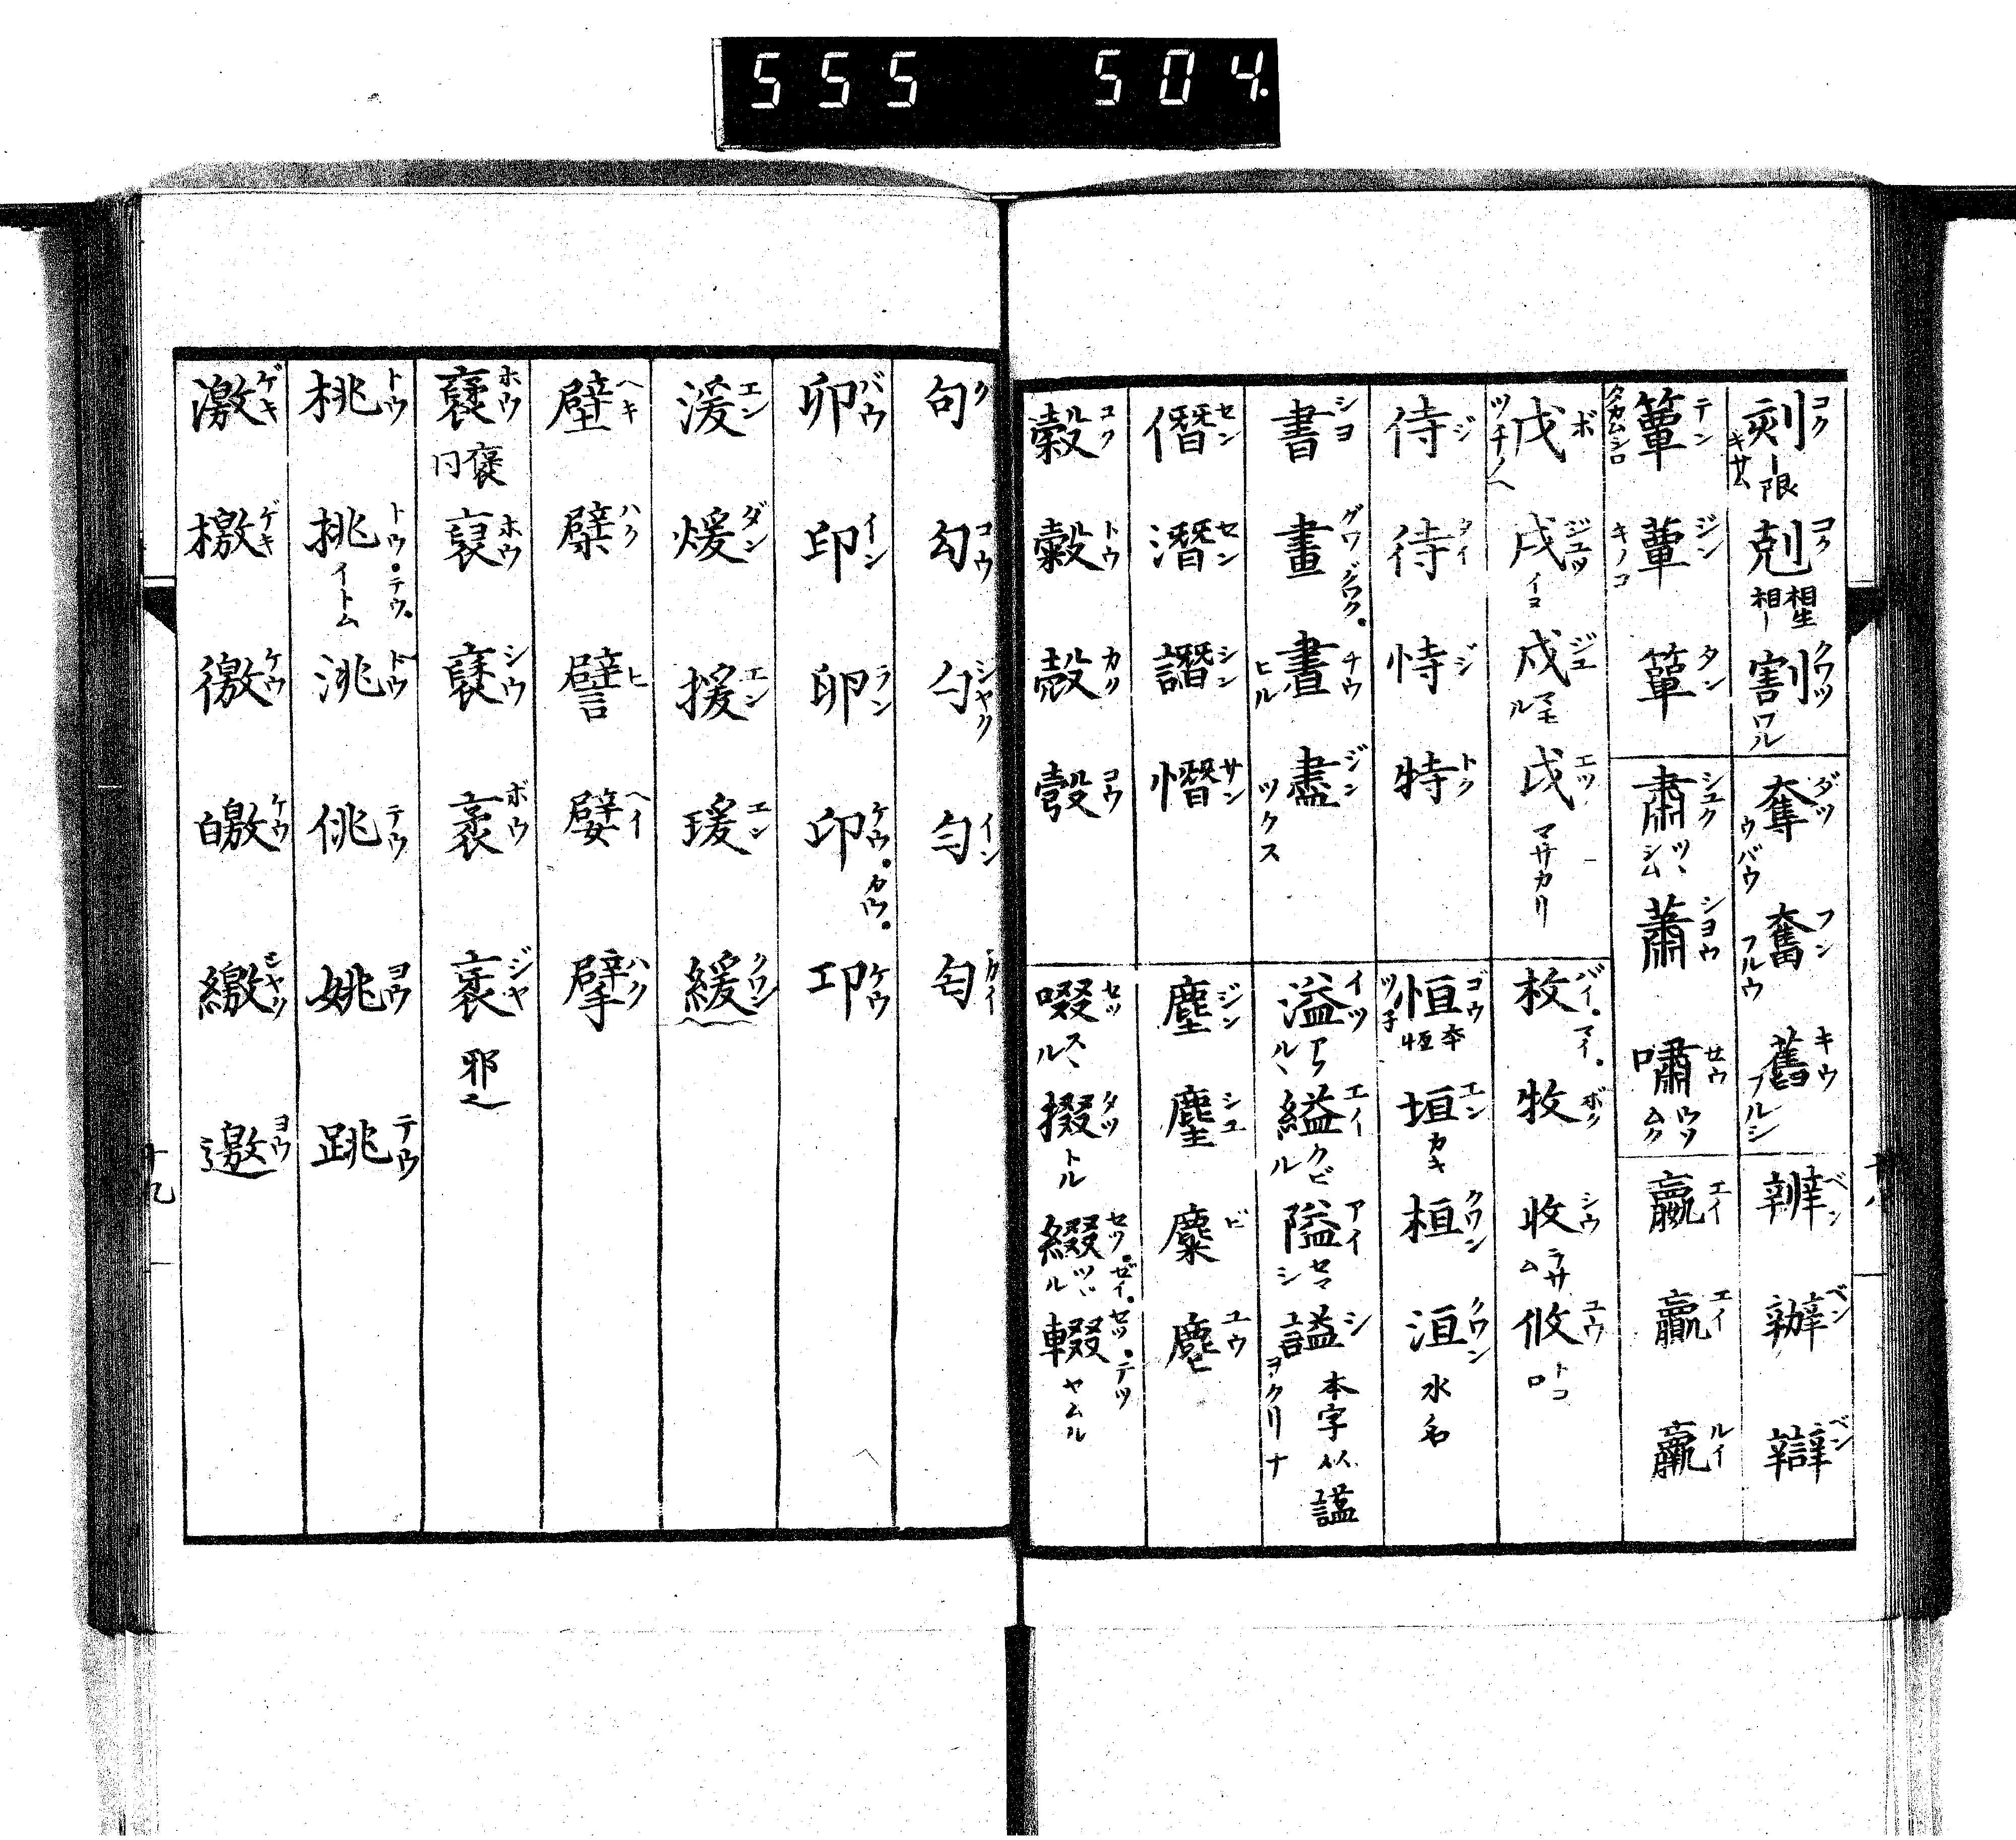 555 504.
刻コク キサム ー限 剋コク 相生相ー 割クワツ ワル 奪ダツ ウバウ 奮フン フルウ 舊キウ フルシ 辨ベン 辦ベン 辯ベン
簟テン タカムシロ 蕈ジン キノコ 簞タン 肅シユク ツヽシム 蕭シヨウ 嘯サウ ウソムク 嬴エイ 贏エイ 羸ルイ
戊ボ ツチノヘ 戌ジユツ イヌ 戍ジユ マモル 戉エツ マサカリ 枚バイ・マイ・ 牧ボク 收シウ ヲサム 攸ユウ トコロ
侍ジ 待タイ 恃ジ 特トク 恒ゴウ ツ子 恆本 垣エン カキ 桓クワン 洹クワン 水名
書シヨ 畫グワ・グワク・ 晝チウ ヒル 盡ジン ツクス 溢イツ アフルヽ 縊エイ クビル 隘アイ セマシ 諡シ ヲクリナ 本字以謚
僭セン 潛セン 譖シン 憯サン 塵ジン 麈シユ 麋ビ 麀ユウ
穀コク ルコク 轂トウ 殼カク 彀コウ 啜セツ スヽル 掇タツ トル 綴セツ・ゼイ・ ツヾル 輟セツ・テツ ヤムル
句ク 勾コウ 勺シヤク 匀イン 匃カイ
卯バウ 印イン 卵ラン 卬ケウ・カウ・ 邛ケウ
湲エン 煖ダン 援エン 瑗エン 緩クワン
壁ヘキ 檗ハク 譬ヒ 嬖ヘイ 擘ハク
襃ホウ 褒同 裒ホウ 褎シウ 袤ボウ 衺ジヤ 邪也
桃トウ 挑トウ・テウ・ イトム 洮トウ 佻テウ 姚ヨウ 跳テウ
激ゲキ 檄ゲキ 徼ケウ 皦ケウ 繳シヤク 邀ヨウ
十九